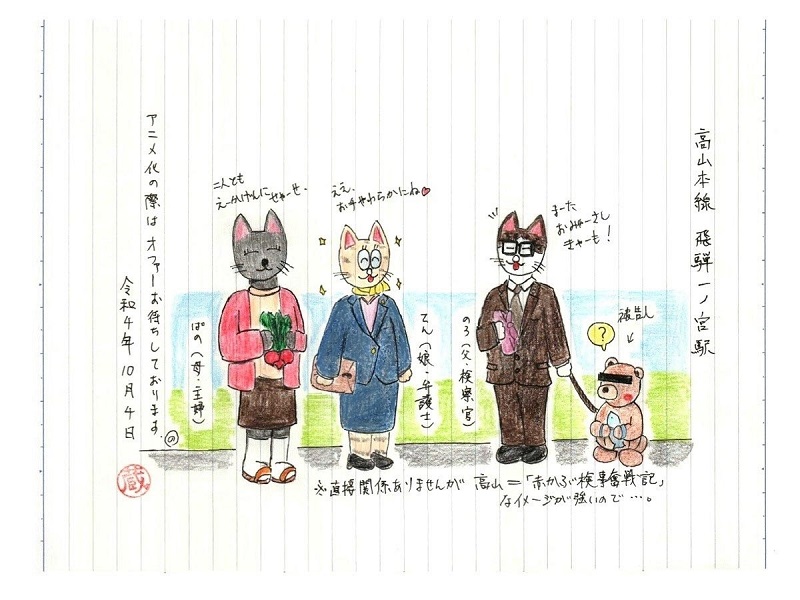 高山本線 飛騨一ノ宮駅
まーた
おみゃーさし
きゃーも！
被告人
?
のろ（父・検察官）
ええ、
お手やわらかにね
てん（娘・弁護士）
二人とも
えーかげんにせやーせ。
ぱの（母・主婦）
アニメ化の際はオファーお待ちしております。
の
令和4年10月4日
蔵
※直接関係ありませんが 高山＝「赤かぶ検事奮戦記」
なイメージが強いので…。